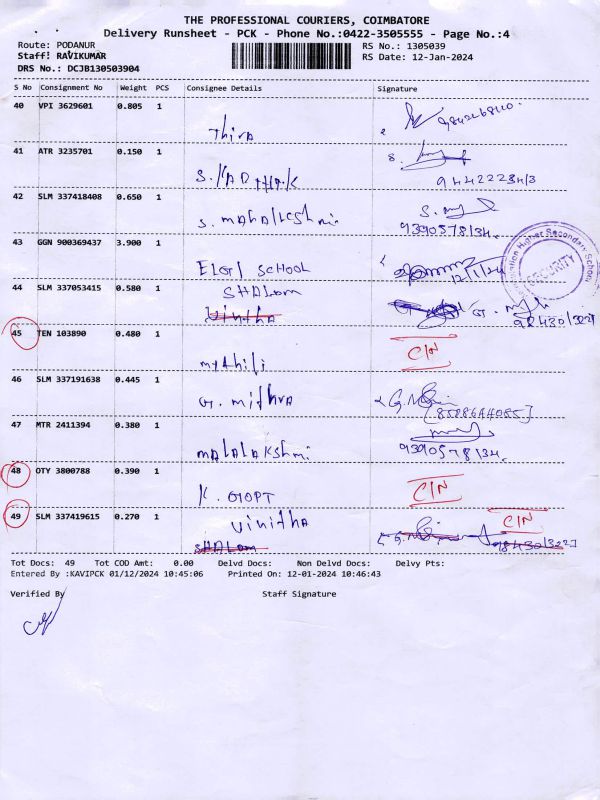 THE PROFESSIONAL COURIERS, COIMBATORE
Delivery Runsheet - PCK - Phone No.:0422-3505555 - Page No.:4
Route: PODANUR
RS No.: 1305039
Staff: RAVIKUMAR
RS Date: 12-Jan-2024
DRS No.: DCJB130503904
S No Consignment No Weight PCS Consignee Details Signature
40 VPI 3629601 0.805 1
Thiva
41 ATR 3235701 0.150 1
42 SLM 337418408 0.650 1
S. mahalakshmi
9390578134
43 GGN 900369437 3.900 1
ELGI SCHOOL
12/1/24
Higher Secondary School
SECURITY
44 SLM 337053415 0.580 1
SHALOM
Vinitha
45 TEN 103890 0.480 1
C/N
mythili
46 SLM 337191638 0.445 1
G. mithra
47 MTR 2411394 0.380 1
9390578134
48 OTY 3800788 0.390 1
C/N
49 SLM 337419615 0.270 1
Vinitha
C/N
SHALOM
Tot Docs: 49 Tot COD Amt: 0.00 Delvd Docs: Non Delvd Docs: Delvy Pts:
Entered By :KAVIPCK 01/12/2024 10:45:06 Printed On: 12-01-2024 10:46:43
Verified By Staff Signature